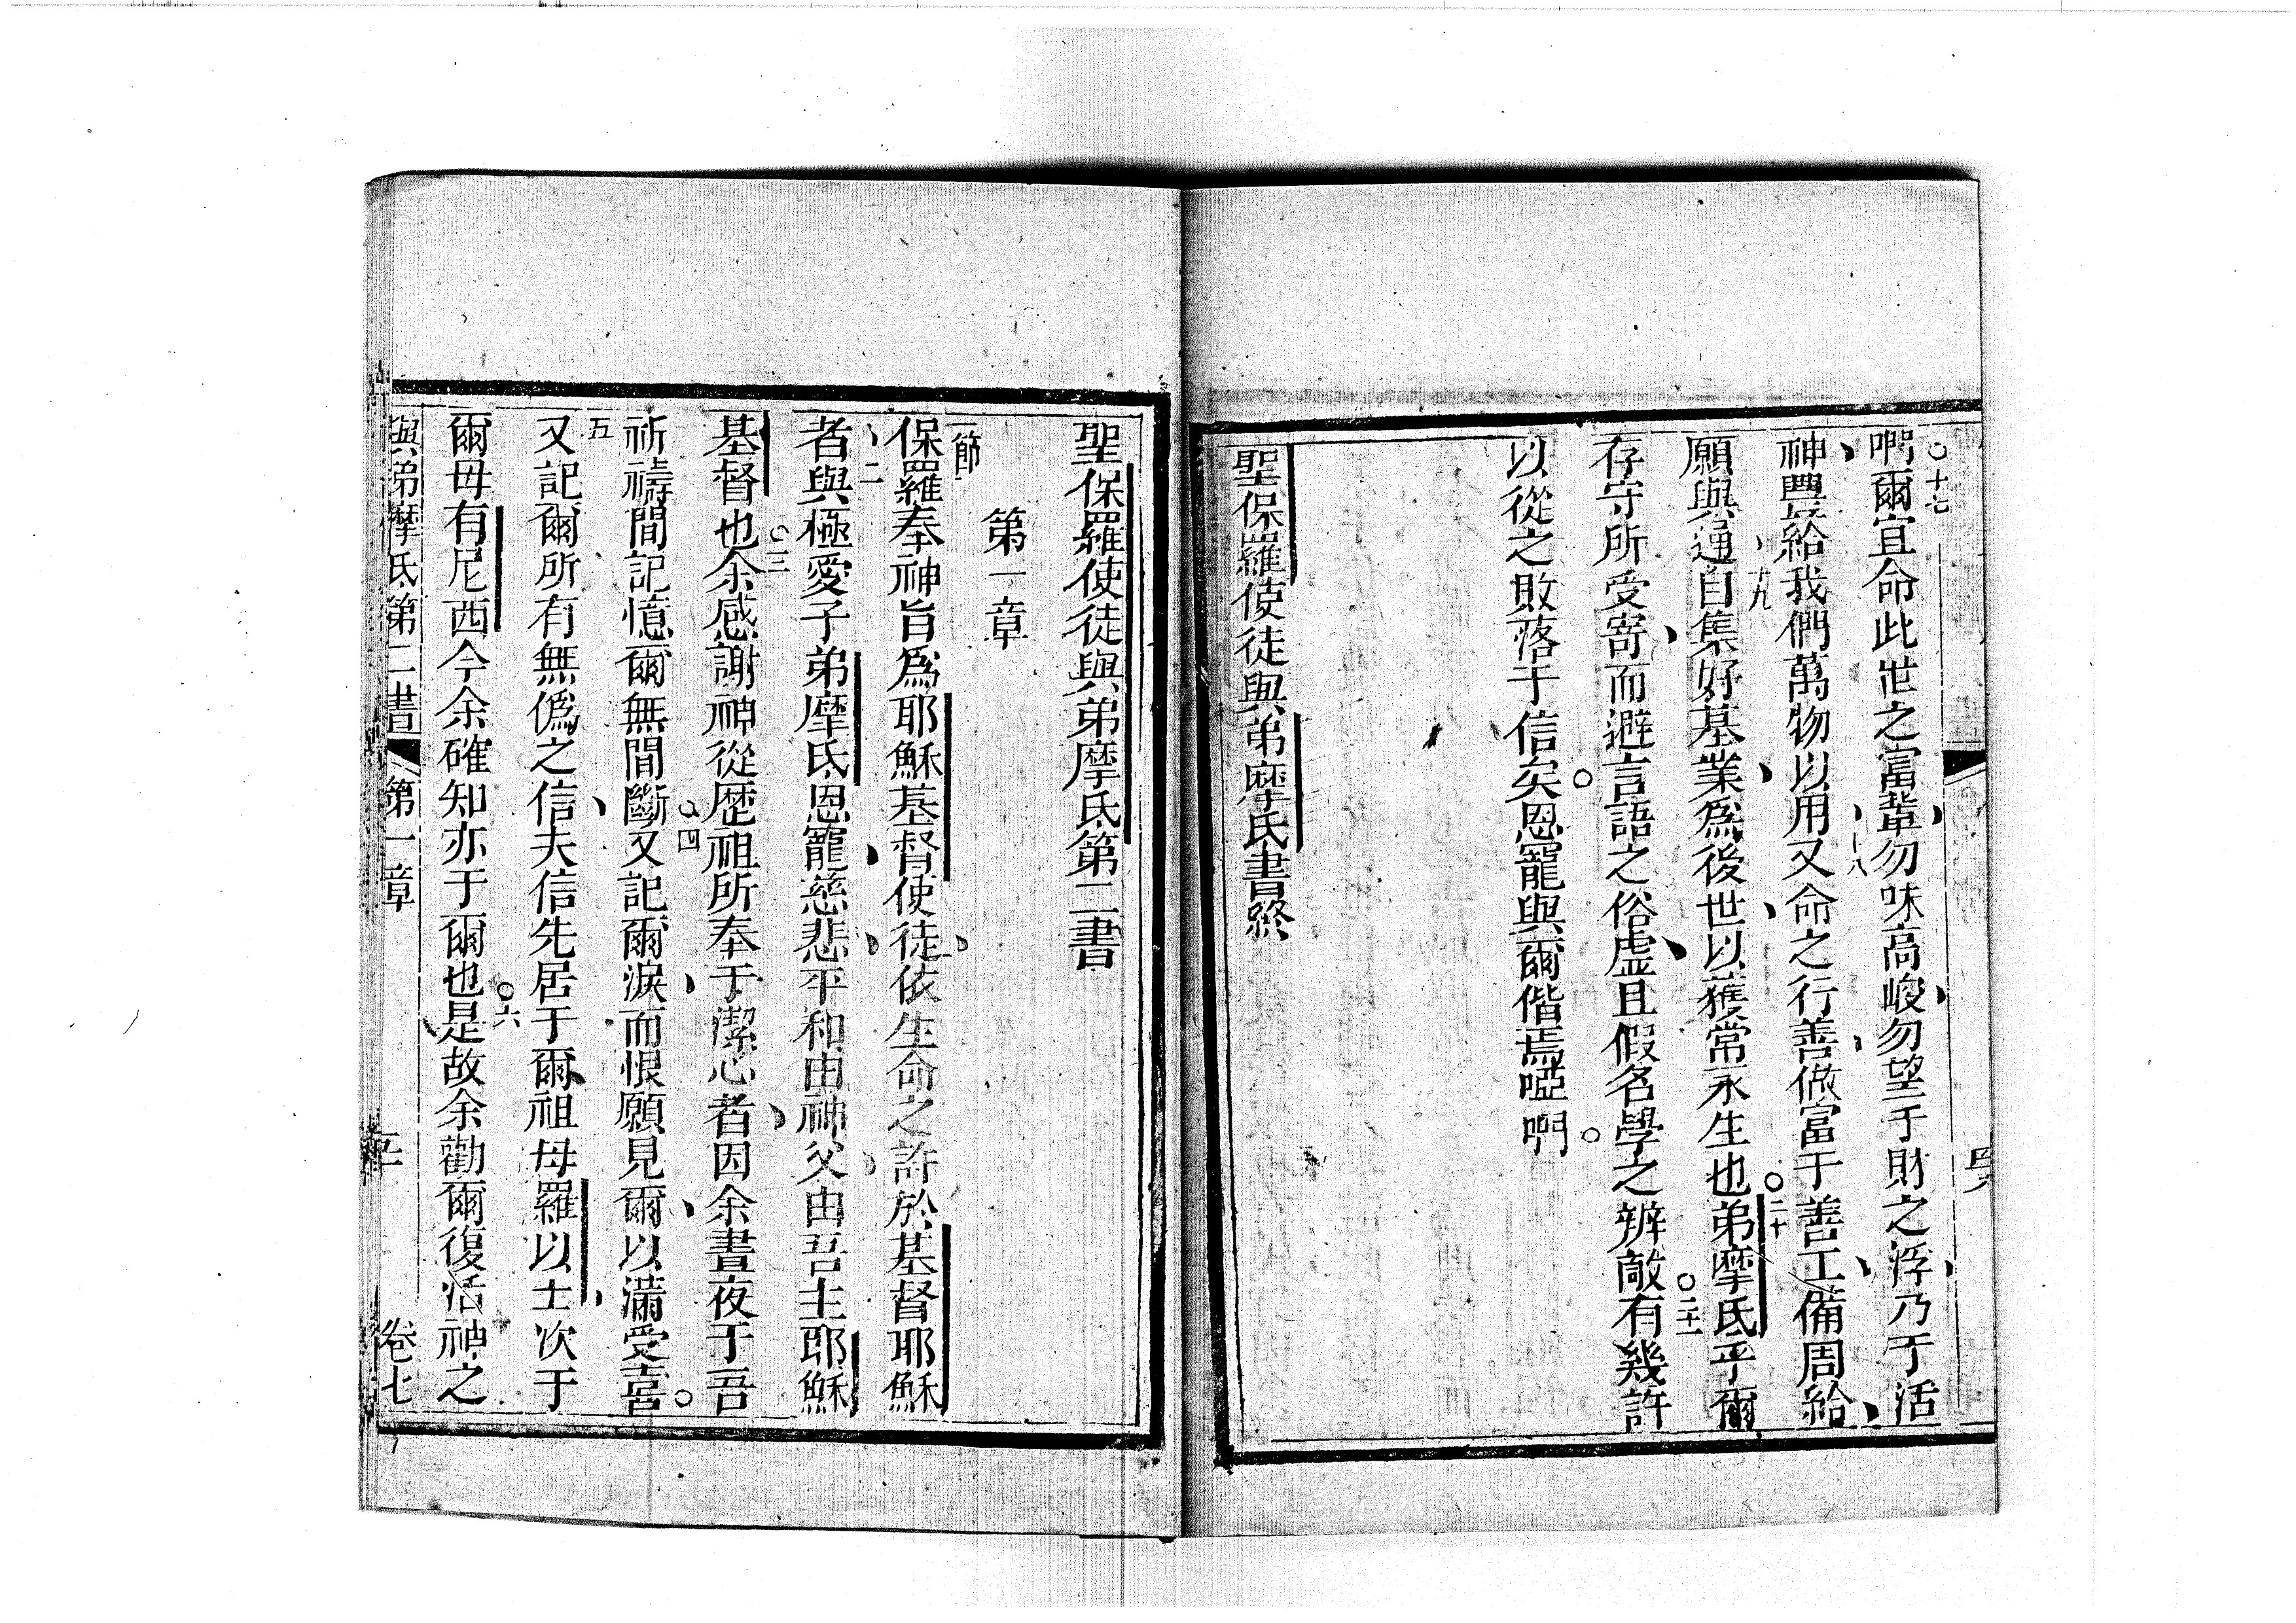 ○十七
啊爾宜命此世之富輩勿味高峻勿望于財之浮乃于活
神豐給我們萬物以用○十八又命之行善做富于善工備周給
願與通○十九自集好基業爲後世以獲常永生也○二十弟摩氐乎爾
存守所受寄而避言語之俗虛且假名學之辨敵○二十一有幾許
以從之敗落于信矣○恩寵與爾偕焉啞啊○
聖保羅使徒與弟摩氐書終
聖保羅使徒與弟摩氐第二書
第一章
一節
保羅奉神旨爲耶穌基督使徒依生命之許於基督耶穌
者二與極愛子弟摩氐恩寵慈悲平和由神父由吾主耶穌
基督也○三余感謝神從歷祖所奉于潔心者因余晝夜于吾
祈禱間記憶爾無間斷○四又記爾淚而恨願見爾以滿受喜○
五又記爾所有無僞之信夫信先居于爾祖母羅以士次于
爾母有尼西今余確知亦于爾也○六是故余勸爾復活神之
與弟摩氐第二書 第一章 卷七